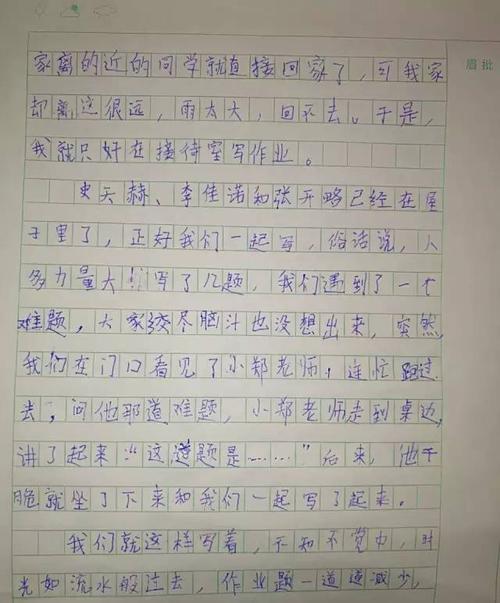 眉批
家离的近的同学就直接回家了，可我家
却离这很远，雨太大，回不去。于是，
我就只好在接待室写作业。
史天赫、李佳诺和张开略已经在屋
子里了，正好我们一起写，俗话说，人
多力量大！写了几题，我们遇到了一个
难题，大家绞尽脑汁也没想出来，突然，
我们在门口看见了小郑老师，连忙跑过
去，问他那道难题，小郑老师走到桌边，
讲了起来：“这道题是……”后来，他干
脆就坐了下来和我们一起写了起来。
我们就这样写着，不知不觉中，时
光如流水般过去，作业题一道道减少，